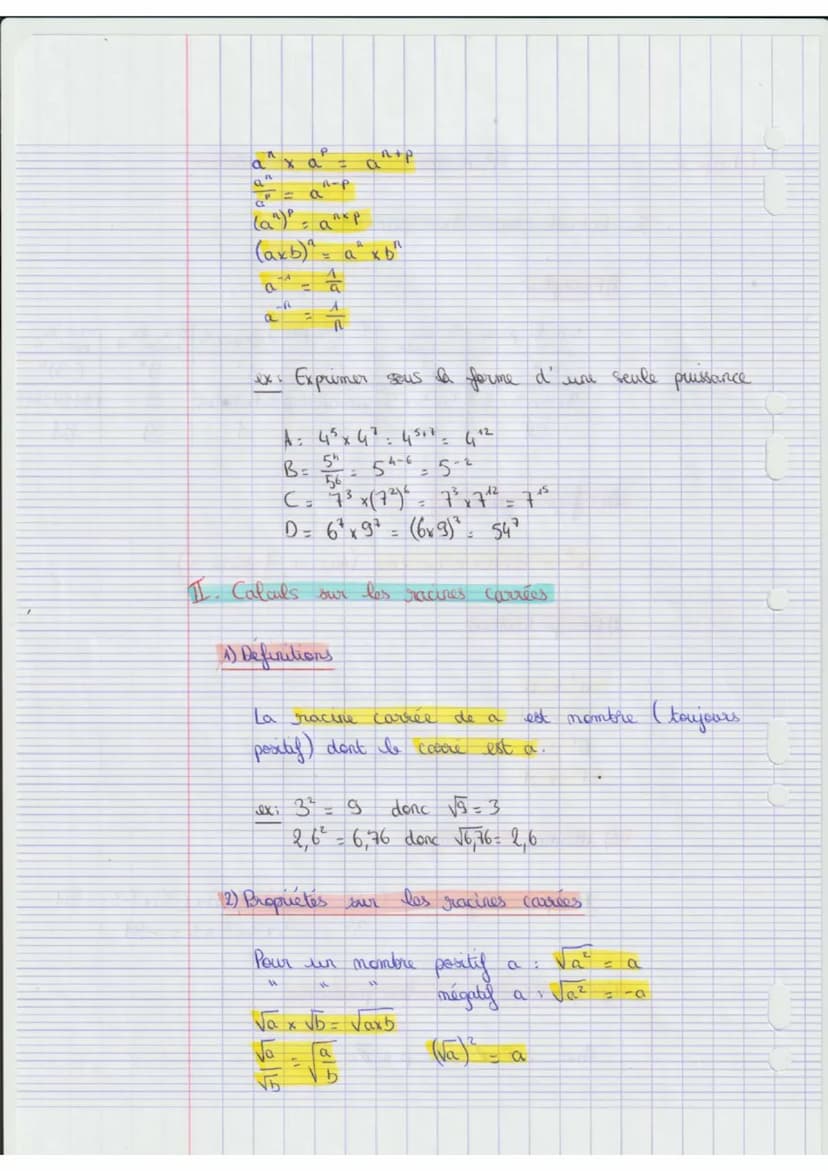 aⁿ × aᵖ = aⁿ⁺ᵖ
aⁿ/aᵖ = aⁿ⁻ᵖ
(aⁿ)ᵖ = aⁿˣᵖ
(a×b)ⁿ = aⁿ × bⁿ
a⁻¹ = 1/a
a⁻ⁿ = 1/n
ex: Exprimer sous la forme d'une seule puissance
A = 4⁵ × 4⁷ = 4⁵⁺⁷ = 4¹²
B = 5⁴/5⁶ = 5⁴⁻⁶ = 5⁻²
C = 7³ × (7²)⁶ = 7³ × 7¹² = 7¹⁵
D = 6⁷ × 9⁷ = (6×9)⁷ = 54⁷
II. Calculs sur les racines carrées
1) Définitions
La racine carrée de a est nombre (toujours
positif) dont le carré est a.
ex: 3² = 9 donc √9 = 3
2,6² = 6,76 donc √6,76 = 2,6
2) Propriétés sur les racines carrées
Pour un nombre positif a : √a² = a
" " " négatif a : √a² = -a
√a × √b = √a×b
√a/√b = √(a/b) (√a)² = a